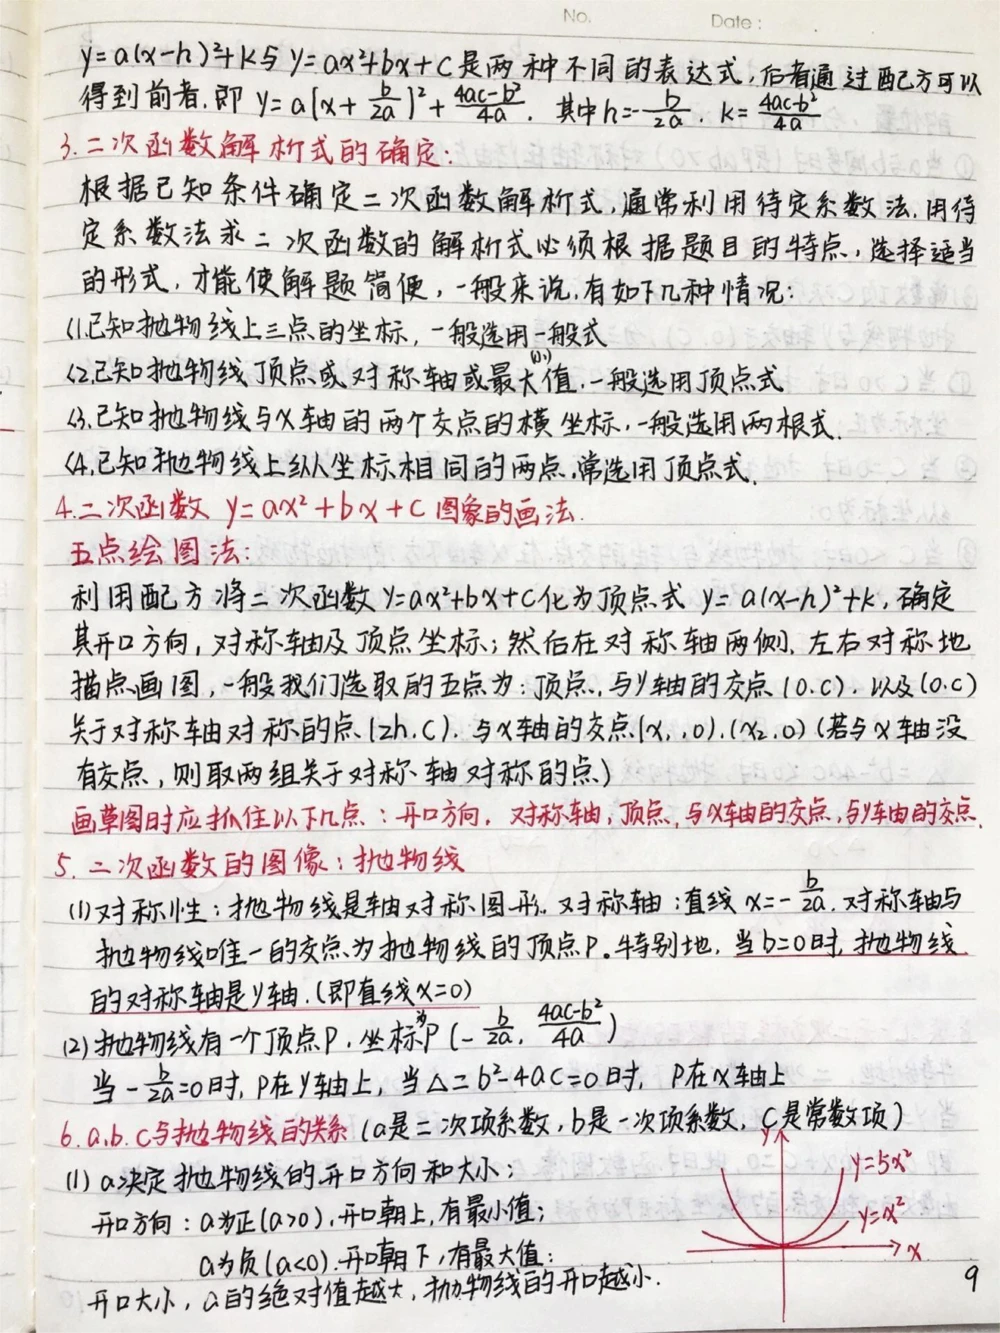 No.
Date:
y=a(x-h)²+k与y=ax²+bx+c是两种不同的表达式,后者通过配方可以
得到前者.即 y=a(x+b/2a)²+(4ac-b²)/4a. 其中h=-b/2a. k=(4ac-b²)/4a
3.二次函数解析式的确定:
根据已知条件确定二次函数解析式,通常利用待定系数法.用待
定系数法求二次函数的解析式必须根据题目的特点,选择适当
的形式,才能使解题简便,一般来说,有如下几种情况:
(1.已知抛物线上三点的坐标,一般选用一般式
(2.已知抛物线顶点或对称轴或最大(小)值.一般选用顶点式
(3.已知抛物线与x轴的两个交点的横坐标,一般选用两根式.
(4.已知抛物线上纵坐标相同的两点.常选用顶点式.
4.二次函数 y=ax²+bx+c图象的画法.
五点绘图法:
利用配方将二次函数y=ax²+bx+c化为顶点式 y=a(x-h)²+k,确定
其开口方向,对称轴及顶点坐标;然后在对称轴两侧,左右对称地
描点画图,一般我们选取的五点为:顶点,与y轴的交点(0.c).以及(0.c)
关于对称轴对称的点(2h.c).与x轴的交点(x₁,0).(x₂.0)(若与x轴没
有交点,则取两组关于对称轴对称的点)
画草图时应抓住以下几点:开口方向,对称轴,顶点,与x轴的交点,与y轴的交点.
5.二次函数的图像:抛物线
(1)对称性:抛物线是轴对称图形.对称轴:直线x=-b/2a.对称轴与
抛物线唯一的交点为抛物线的顶点P。特别地,当b=0时,抛物线
的对称轴是y轴.(即直线x=0)
(2)抛物线有一个顶点P,坐标为P(-b/2a,(4ac-b²)/4a)
当-b/2a=0时,P在y轴上,当△=b²-4ac=0时,P在x轴上
6.a.b.c与抛物线的关系(a是二次项系数,b是一次项系数,c是常数项)
(1) a决定抛物线的开口方向和大小;
开口方向:a为正(a>0),开口朝上,有最小值;
a为负(a<0).开口朝下,有最大值;
开口大小,a的绝对值越大,抛物线的开口越小.
y
y=5x²
y=x²
x
9